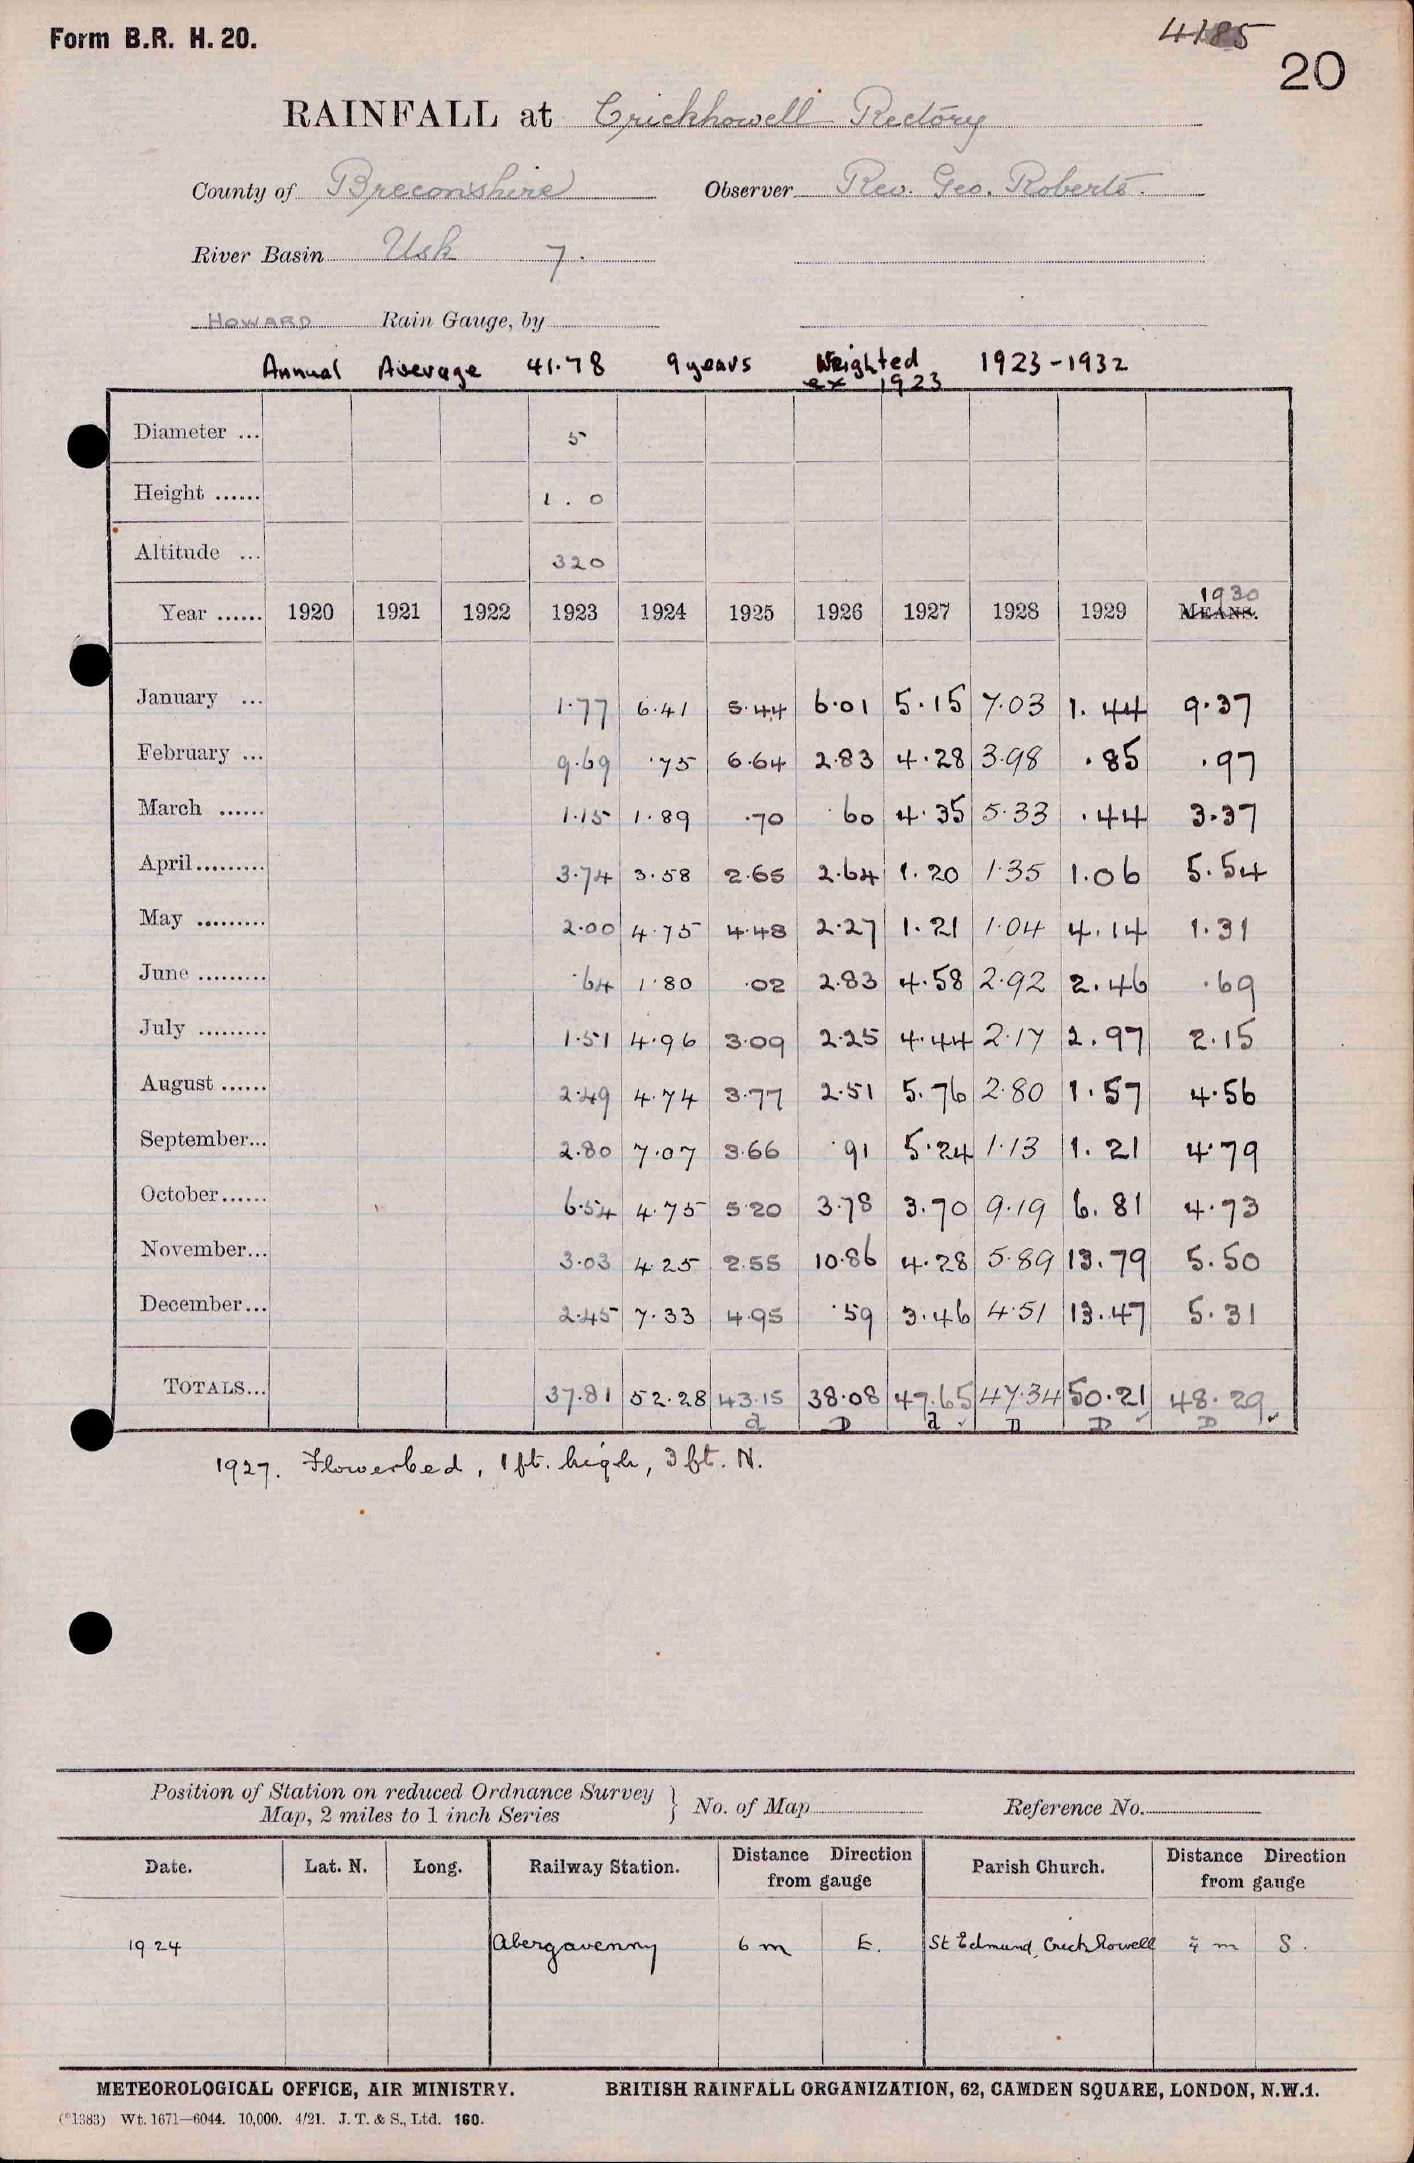 Form B.R. H. 20.
4185
20
RAINFALL at Crickhowell Rectory
County of Breconshire Observer Rev. Geo. Roberts.
River Basin Usk 7.
HOWARD Rain Gauge, by
Annual Average 41.78 9 years Weighted 1923-1932
ex 1923
Diameter ... 5
Height ...... 1.0
Altitude ... 320
1930
Year ...... 1920 1921 1922 1923 1924 1925 1926 1927 1928 1929 MEANS.
January ... 1.77 6.41 5.44 6.01 5.15 7.03 1.44 9.37
February ... 9.69 .75 6.64 2.83 4.28 3.98 .85 .97
March ...... 1.15 1.89 .70 .60 4.35 5.33 .44 3.37
April......... 3.74 3.58 2.65 2.64 1.20 1.35 1.06 5.54
May ......... 2.00 4.75 4.48 2.27 1.21 1.04 4.14 1.31
June ......... .64 1.80 .02 2.83 4.58 2.92 2.46 .69
July ......... 1.51 4.96 3.09 2.25 4.44 2.17 2.97 2.15
August ...... 2.49 4.74 3.77 2.51 5.76 2.80 1.57 4.56
September... 2.80 7.07 3.66 .91 5.24 1.13 1.21 4.79
October...... 6.54 4.75 5.20 3.78 3.70 9.19 6.81 4.73
November... 3.03 4.25 2.55 10.86 4.28 5.89 13.79 5.50
December... 2.45 7.33 4.95 .59 3.46 4.51 13.47 5.31
TOTALS... 37.81 52.28 43.15 38.08 47.65 47.34 50.21 48.29
a D a ✓ D D ✓ D ✓
1927. Flowerbed, 1 ft. high, 3 ft. N.
Position of Station on reduced Ordnance Survey
Map, 2 miles to 1 inch Series } No. of Map Reference No.
Date. Lat. N. Long. Railway Station. Distance Direction from gauge Parish Church. Distance Direction from gauge
1924 Abergavenny 6 m E. St Edmund, Crickhowell m S.
METEOROLOGICAL OFFICE, AIR MINISTRY. BRITISH RAINFALL ORGANIZATION, 62, CAMDEN SQUARE, LONDON, N.W.1.
(*1383) Wt. 1671—6044. 10,000. 4/21. J. T. & S., Ltd. 160.